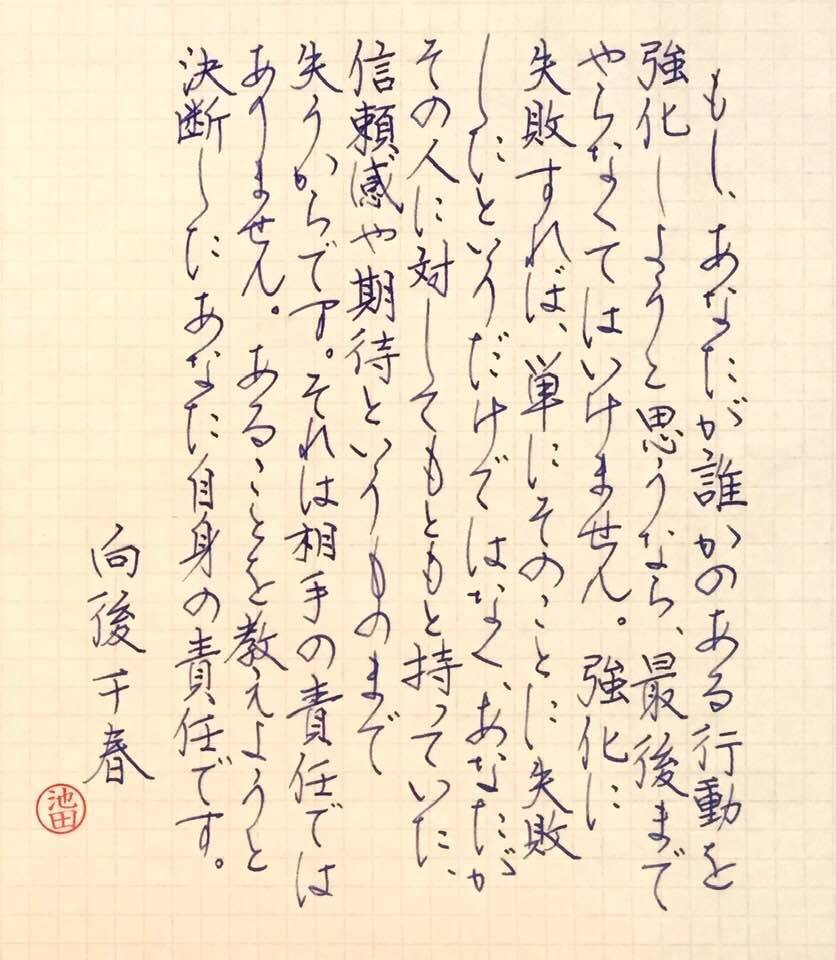 もし、あなたが誰かのある行動を
強化しようと思うなら、最後まで
やらなくてはいけません。強化に
失敗すれば、単にそのことに失敗
したというだけではなく、あなたが
その人に対してもともと持っていた、
信頼感や期待というものまで
失うからです。それは相手の責任では
ありません。あることを教えようと
決断したあなた自身の責任です。
向後千春
池田